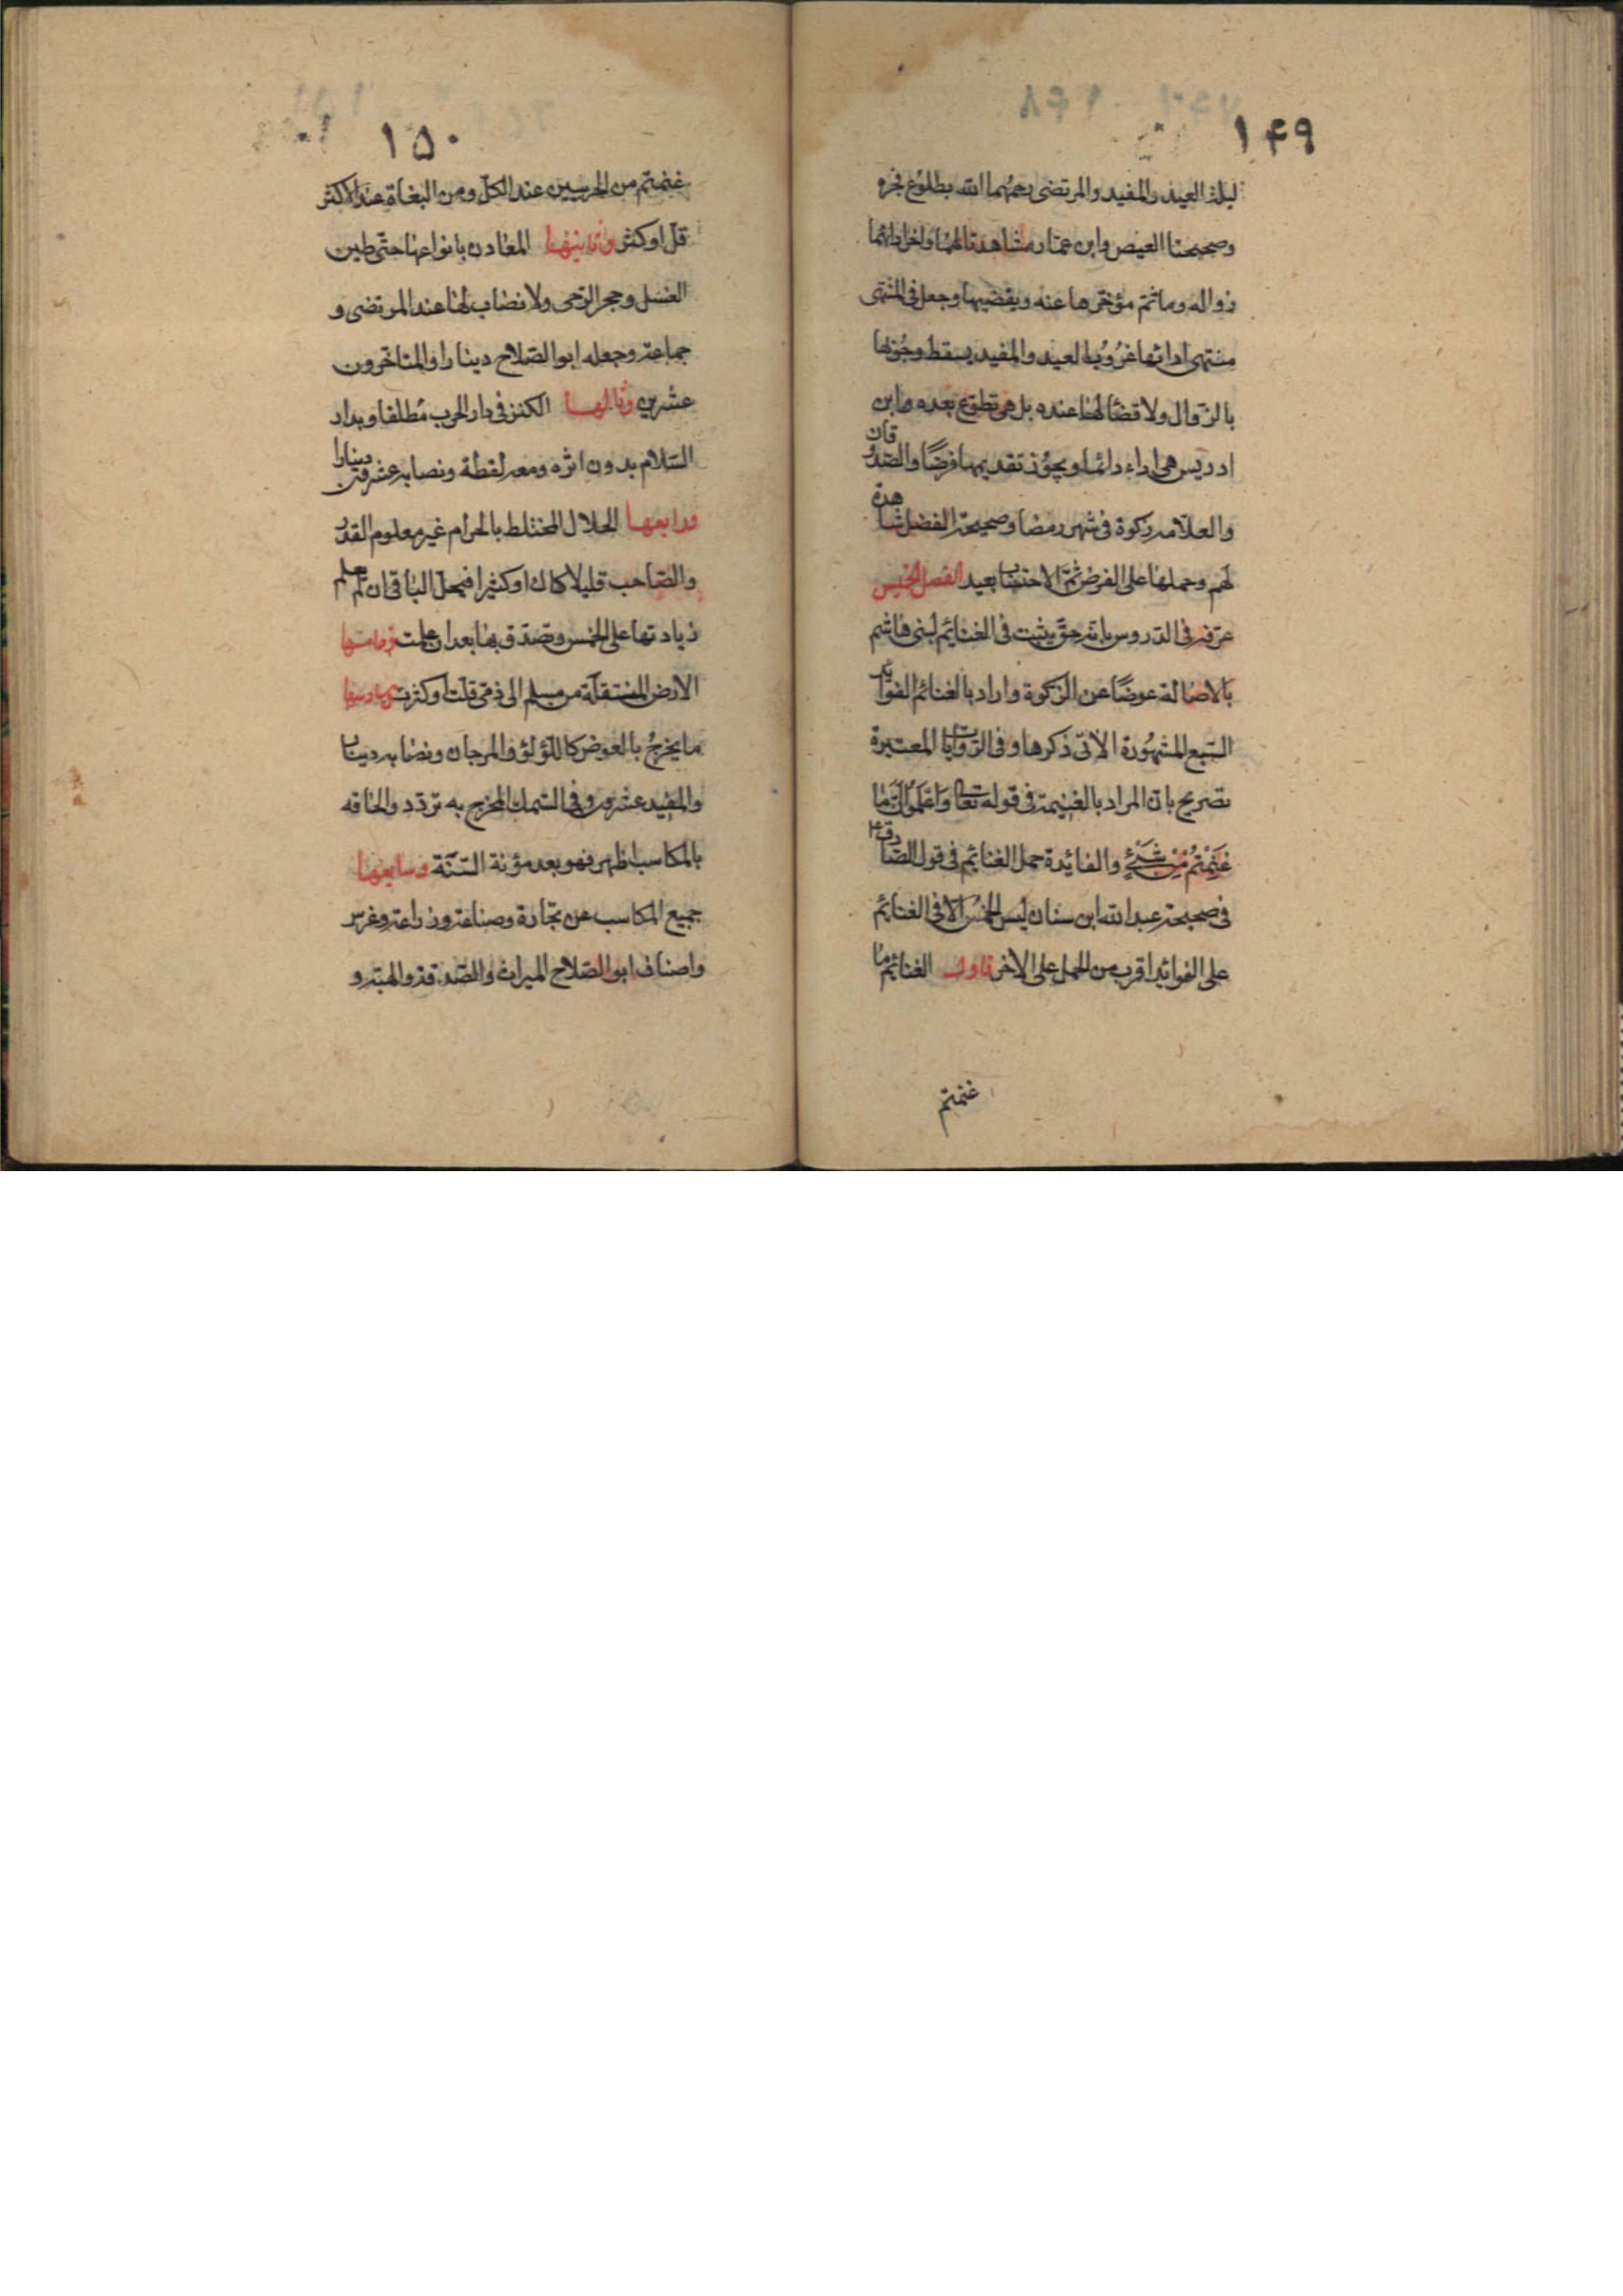 ۱۴۹
ليلة العيد والمفيد والمرتضى رحمهما الله بطلوع فجره
وصحيحتا العيص وابن عمار شاهدتا لهما واخر ادائها
زواله وماثم مؤخرها عنه ويقضيها وجعل فى المنتهى
منتهى ادائها غروب العيد والمفيد يسقط وجوبها
بالزوال ولا قضا لها عنده بل هى تطوع بعده وابن
ادريس هى اداء دائما ويجوز تقديمها فرضا والصدوقان
والعلامة زكوة فى شهر رمضا وصحيحة الفضل شاهدة
لهم وحملها على الفرض ثم الاحتساب بعيد الفصل الخمس
عرفه فى الدروس بانه حق يثبت فى الغنائم لبنى هاشم
بالاصالة عوضا عن الزكوة واراد بالغنائم الفوائد
السبع المشهورة الآتى ذكرها وفى الروايات المعتبرة
تصريح بان المراد بالغنيمة فى قوله تعالى واعلموا انما
غنمتم من شئ والفائدة حمل الغنائم فى قول الصادق ع
فى صحيحة عبد الله ابن سنان ليس الخمس الا فى الغنائم
على الفوائد اقرب من الحمل على الاخر فاولها الغنائم ما
غنمتم
۱۵۰
غنمتم من الحربيين عند الكل ومن البغاة عند الاكثر
قل او كثر وثانيها المعادن بانواعها حتى طين
الغسل وحجر الرحى ولا نصاب لها عند المرتضى و
جماعة وجعله ابو الصلاح دينارا والمتاخرون
عشرين وثالثها الكنز فى دار الحرب مطلقا وبدار
السلام بدون اثره ومعه لقطة ونصابه عشرون دينارا
ورابعها الحلال المختلط بالحرام غير معلوم القدر
والصاحب قليلا كان او كثيرا فيحل الباقى ان لم يعلم
زيادتها على الخمس وتصدق بها بعد ان علمت وخامسها
الارض المنتقلة من مسلم الى ذمى قلت او كثرت وسادسها
ما يخرج بالغوص كاللؤلؤ والمرجان ونصابه دينار
والمفيد عشرون وفى السمك المخرج به تردد والحاقه
بالمكاسب اظهر فهو بعد مؤنة السنة وسابعها
جميع المكاسب من تجارة وصناعة وزراعة وغرس
واضاف ابو الصلاح الميراث والصدقة والهبة و